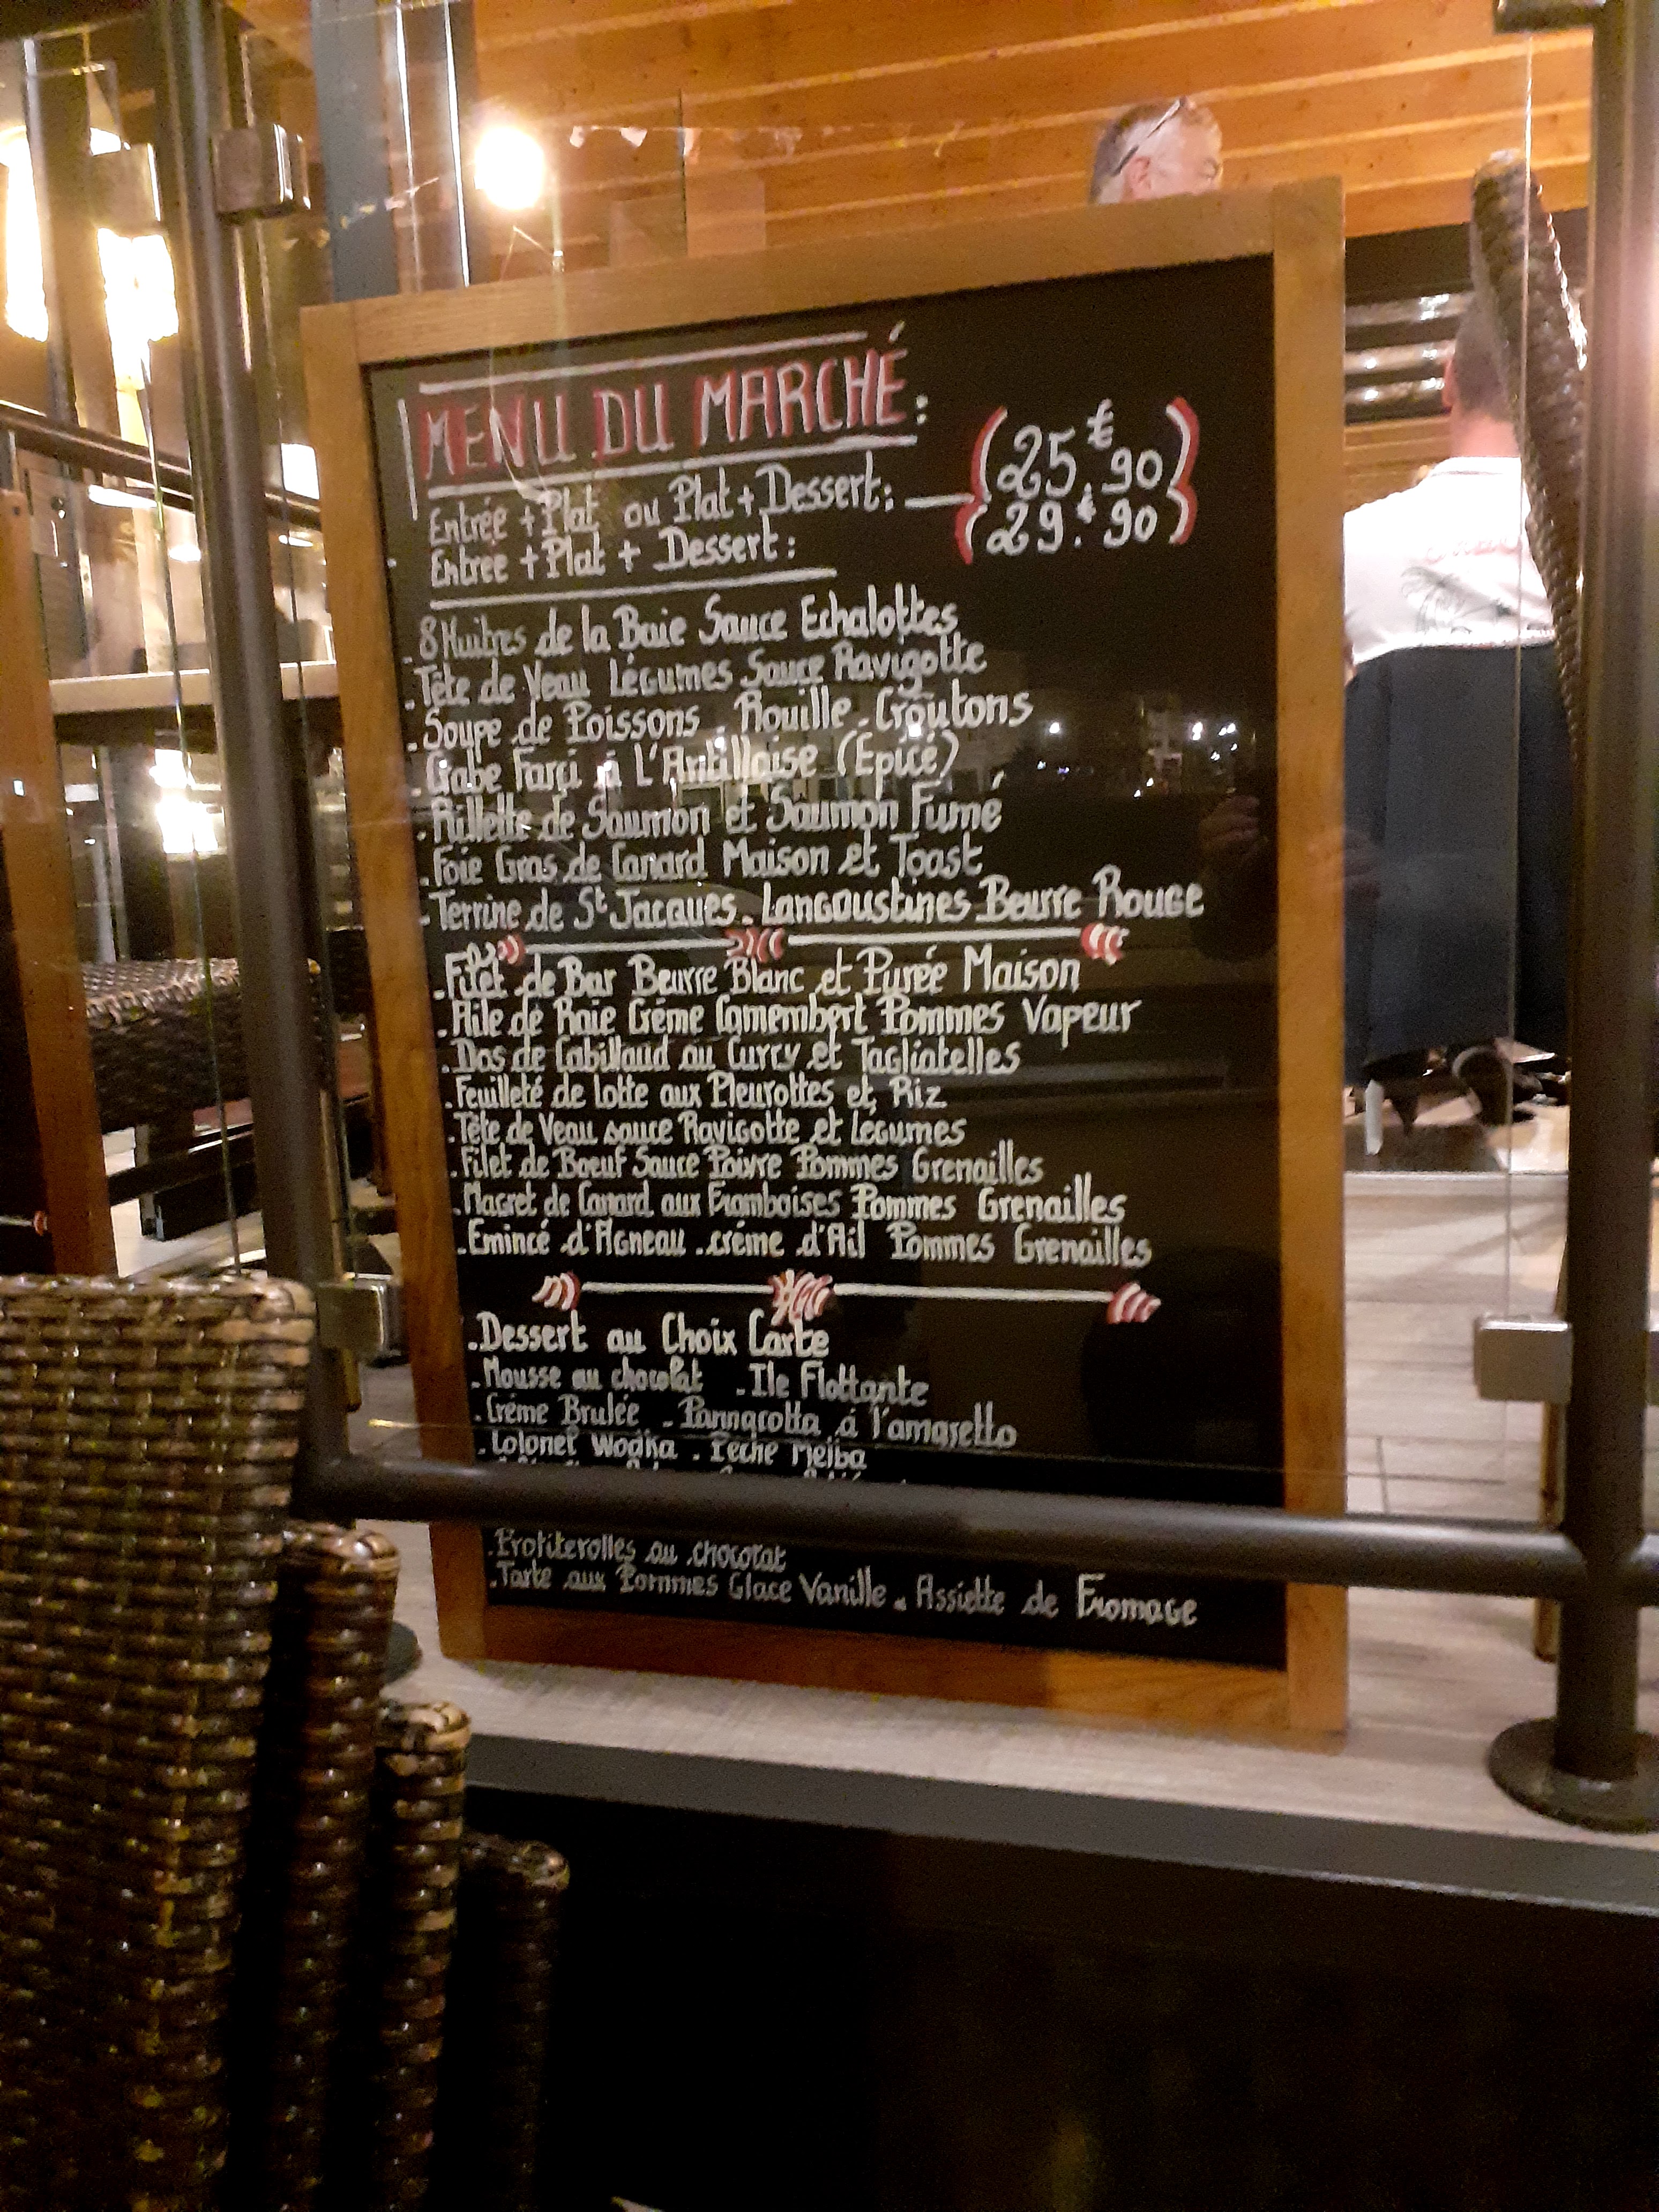 MENU DU MARCHÉ:
Entrée + Plat ou Plat + Dessert: 25.€90
Entree + Plat + Dessert: 29.€90
. 8 Huitres de la Baie Sauce Echalottes
. Tête de Veau Légumes Sauce Ravigotte
. Soupe de Poissons . Rouille . Croutons
. Crabe Farçi à L'Antillaise (Epicé)
. Rillette de Saumon et Saumon Fumé
. Foie Gras de Canard Maison et Toast
. Terrine de St Jacques . Langoustines Beurre Rouge
. Filet de Bar Beurre Blanc et Purée Maison
. Aile de Raie Crème Camembert Pommes Vapeur
. Dos de Cabillaud au Curry et Tagliatelles
. Feuilleté de lotte aux Pleurottes et Riz
. Tête de Veau sauce Ravigotte et Legumes
. Filet de Boeuf Sauce Poivre Pommes Grenailles
. Magret de Canard aux Framboises Pommes Grenailles
. Emincé d'Agneau . créme d'Ail Pommes Grenailles
. Dessert au Choix Carte
. Mousse au chocolat . Ile Flottante
. Créme Brulée . Pannacotta á l'amaretto
. Colonel Wodka . Peche Melba
. Profiterolles au chocolat
. Tarte aux Pommes Glace Vanille . Assiette de Fromage